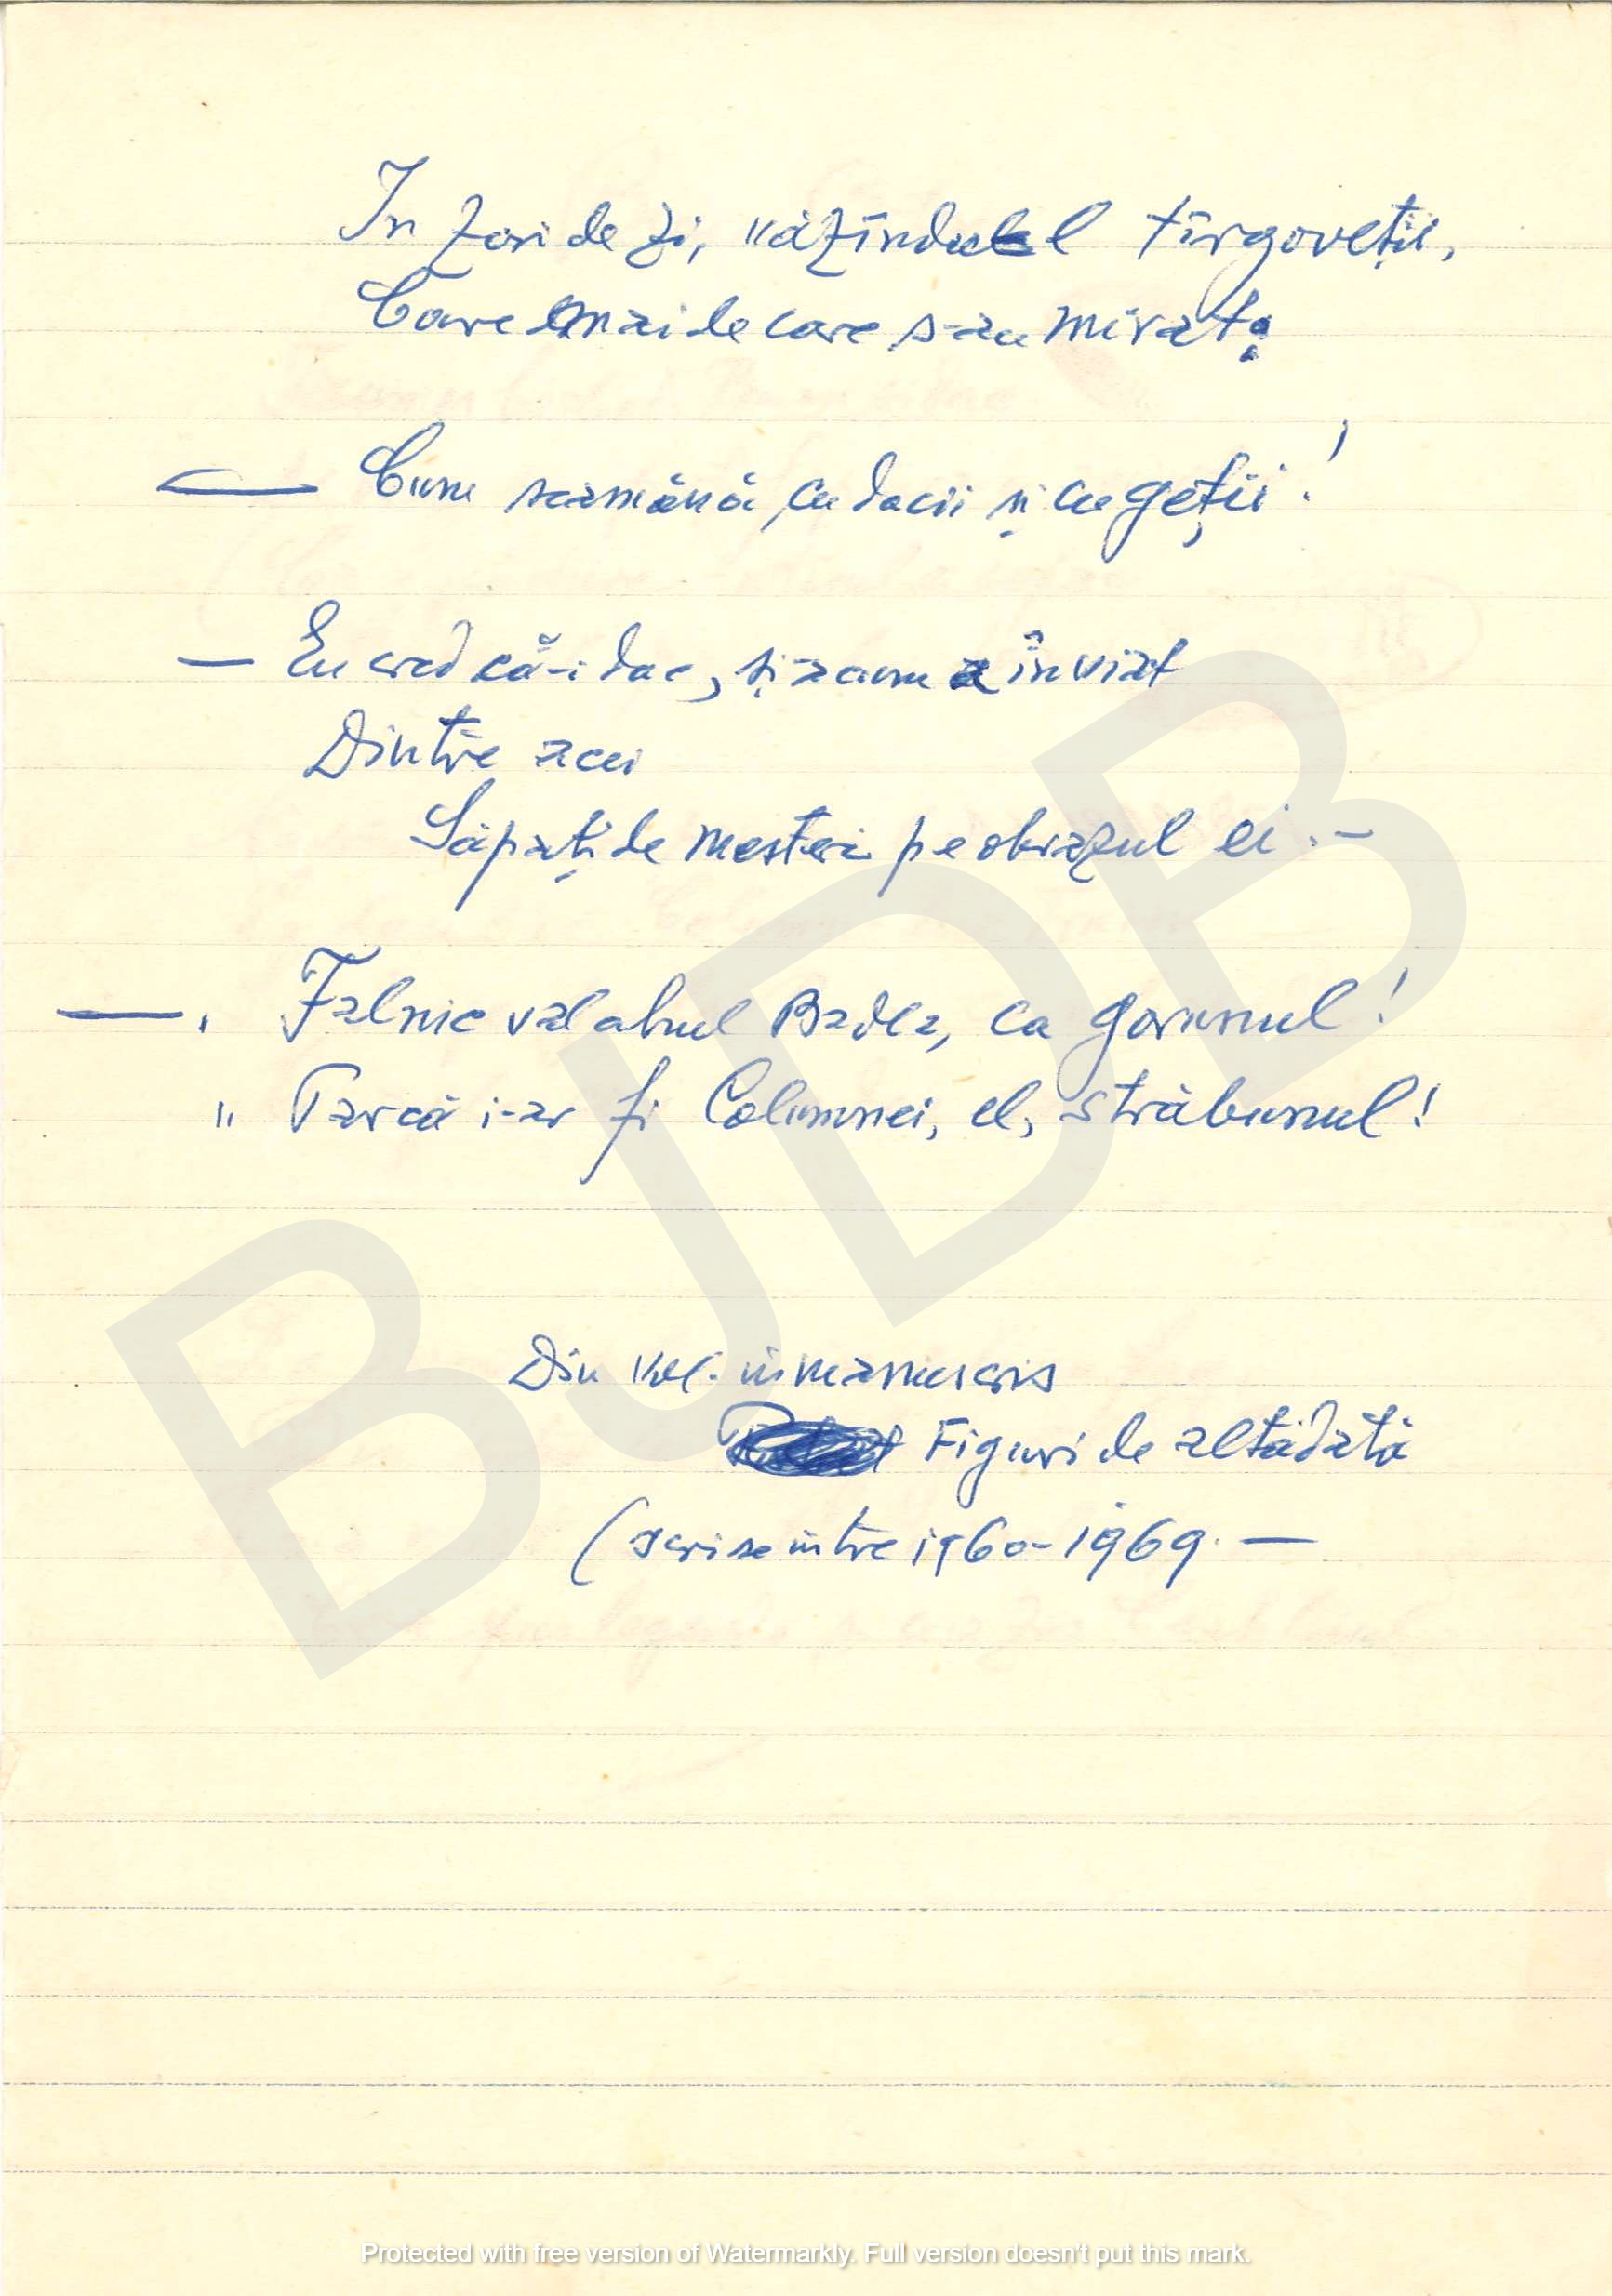 In zori de zi, văzîndu-l tîrgoveții,
Care mai de care s-au mirat:
— Cum seamănă cu dacii și cu geții!
— Eu cred că-i dac, și acum a înviat
Dintre acei
Săpați de meșteri pe obrazul ei. —
— „Falnic valahul Badea, ca gorunul!
„ Parcă i-ar fi Columnei, el, străbunul!
Din vol. în manuscris
Figuri de altădată
(scrise între 1960-1969. —
BJDB
Protected with free version of Watermarkly. Full version doesn't put this mark.